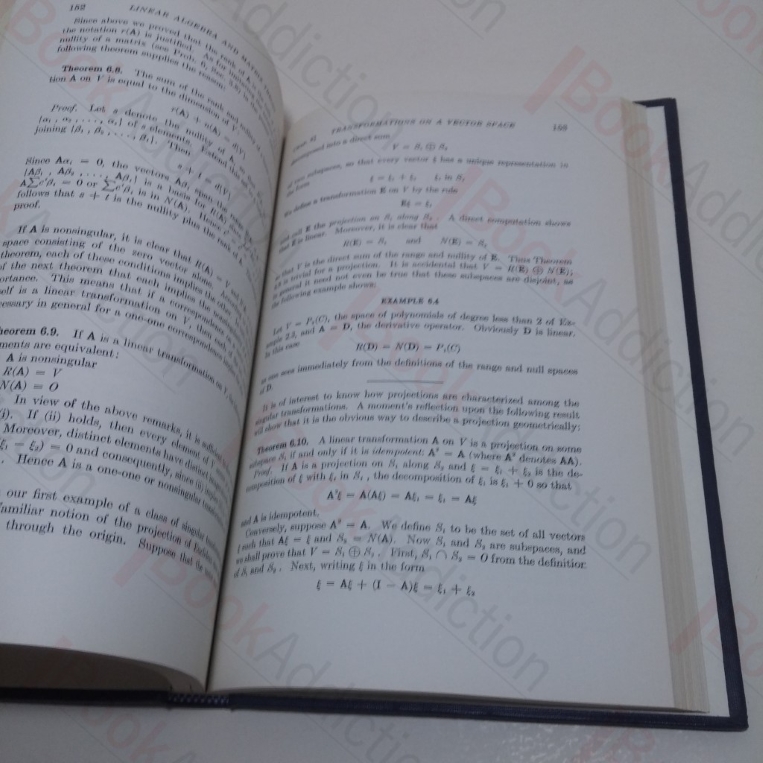 152 LINEAR ALGEBRA AND MATRIX
Since above we proved that the rank of A is
the notation r(A) is justified. As for
nullity of a matrix (see Prob. 6, Sec.
following theorem supplies the reason.
Theorem 6.8. The sum of the rank and nullity
tion A on V is equal to the dimension of V.
r(A) + n(A) = d(V)
Proof. Let s denote the nullity of A,
{α₁, α₂, . . . , αₛ} of s elements. Extend
joining {β₁, β₂, . . . , βₜ}. Then
s + t = d(V)
Since Aαᵢ = 0, the vectors Aβᵢ span the
{Aβ₁, Aβ₂, . . . , Aβₜ} is a basis for R(A)
A∑cⁱβᵢ = 0 or ∑cⁱβᵢ is in N(A). Hence
follows that s + t is the nullity plus the rank of
proof.
If A is nonsingular, it is clear that R(A) = V and
space consisting of the zero vector alone.
theorem, each of these conditions implies the
of the next theorem that each implies the
ortance. This means that if a correspondence
self is a linear transformation on V, then
essary in general for a one-one correspondence
heorem 6.9. If A is a linear transformation on V,
ments are equivalent:
A is nonsingular
R(A) = V
N(A) = O
In view of the above remarks, it is sufficient
(i). If (ii) holds, then every element of V
Moreover, distinct elements have distinct
ξ₁ − ξ₂) = 0 and consequently, since (ii)
. Hence A is a one-one or nonsingular
our first example of a class of singular
familiar notion of the projection of Euclidean
through the origin. Suppose that the
TRANSFORMATIONS ON A VECTOR SPACE 153
decomposed into a direct sum
V = S₁ ⊕ S₂
of two subspaces, so that every vector ξ has a unique representation in
the form
ξ = ξ₁ + ξ₂ ξᵢ in Sᵢ
We define a transformation E on V by the rule
Eξ = ξ₁
and call E the projection on S₁ along S₂. A direct computation shows
that E is linear. Moreover, it is clear that
R(E) = S₁ and N(E) = S₂
so that V is the direct sum of the range and nullity of E. Thus Theorem
is crucial for a projection. It is accidental that V = R(E) ⊕ N(E);
in general it need not even be true that these subspaces are disjoint, as
the following example shows:
EXAMPLE 6.4
Let V = P₂(C), the space of polynomials of degree less than 2 of Ex-
ample 2.2, and A = D, the derivative operator. Obviously D is linear.
In this case
R(D) = N(D) = P₁(C)
as one sees immediately from the definitions of the range and null spaces
of D.
It is of interest to know how projections are characterized among the
singular transformations. A moment's reflection upon the following result
will show that it is the obvious way to describe a projection geometrically:
Theorem 6.10. A linear transformation A on V is a projection on some
subspace S₁ if and only if it is idempotent: A² = A (where A² denotes AA).
Proof. If A is a projection on S₁ along S₂ and ξ = ξ₁ + ξ₂ is the de-
composition of ξ with ξᵢ in Sᵢ, the decomposition of ξ₁ is ξ₁ + 0 so that
A²ξ = A(Aξ) = Aξ₁ = ξ₁ = Aξ
and A is idempotent.
Conversely, suppose A² = A. We define S₁ to be the set of all vectors
ξ such that Aξ = ξ and S₂ = N(A). Now S₁ and S₂ are subspaces, and
we shall prove that V = S₁ ⊕ S₂. First, S₁ ∩ S₂ = O from the definition
of S₁ and S₂. Next, writing ξ in the form
ξ = Aξ + (I − A)ξ = ξ₁ + ξ₂
BookAddiction